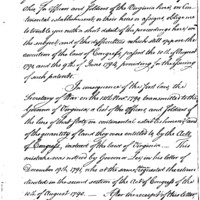 the Officers and Soldiers of the Virginia line, on Con-
tinental establishment, or their heirs or assigns, obliges me
to trouble you with a short detail of the proceedings here, on
the subject, and of the difficulties which still oppose the
execution of the laws of Congress passed the 10th of August
1790 and the 9th of June 1794, providing for the issuing
of such patents.
In consequence of the last law, the
Secretary of War on the 1794 transmitted to the
Governor of Virginia, a list of the Officers, and Soldiers of
the line of that State, on continental establishment, and
of the quantity of land they were entitled to by the Acts
of Congress, instead of the laws of Virginia. This
mistake was noticed by Governor Lee, in his letter of
December 9th, 1794, who at the same, requested the return
directed in the second section of the Act of Congress of the
10th of August 1790. After the receipt of this letter